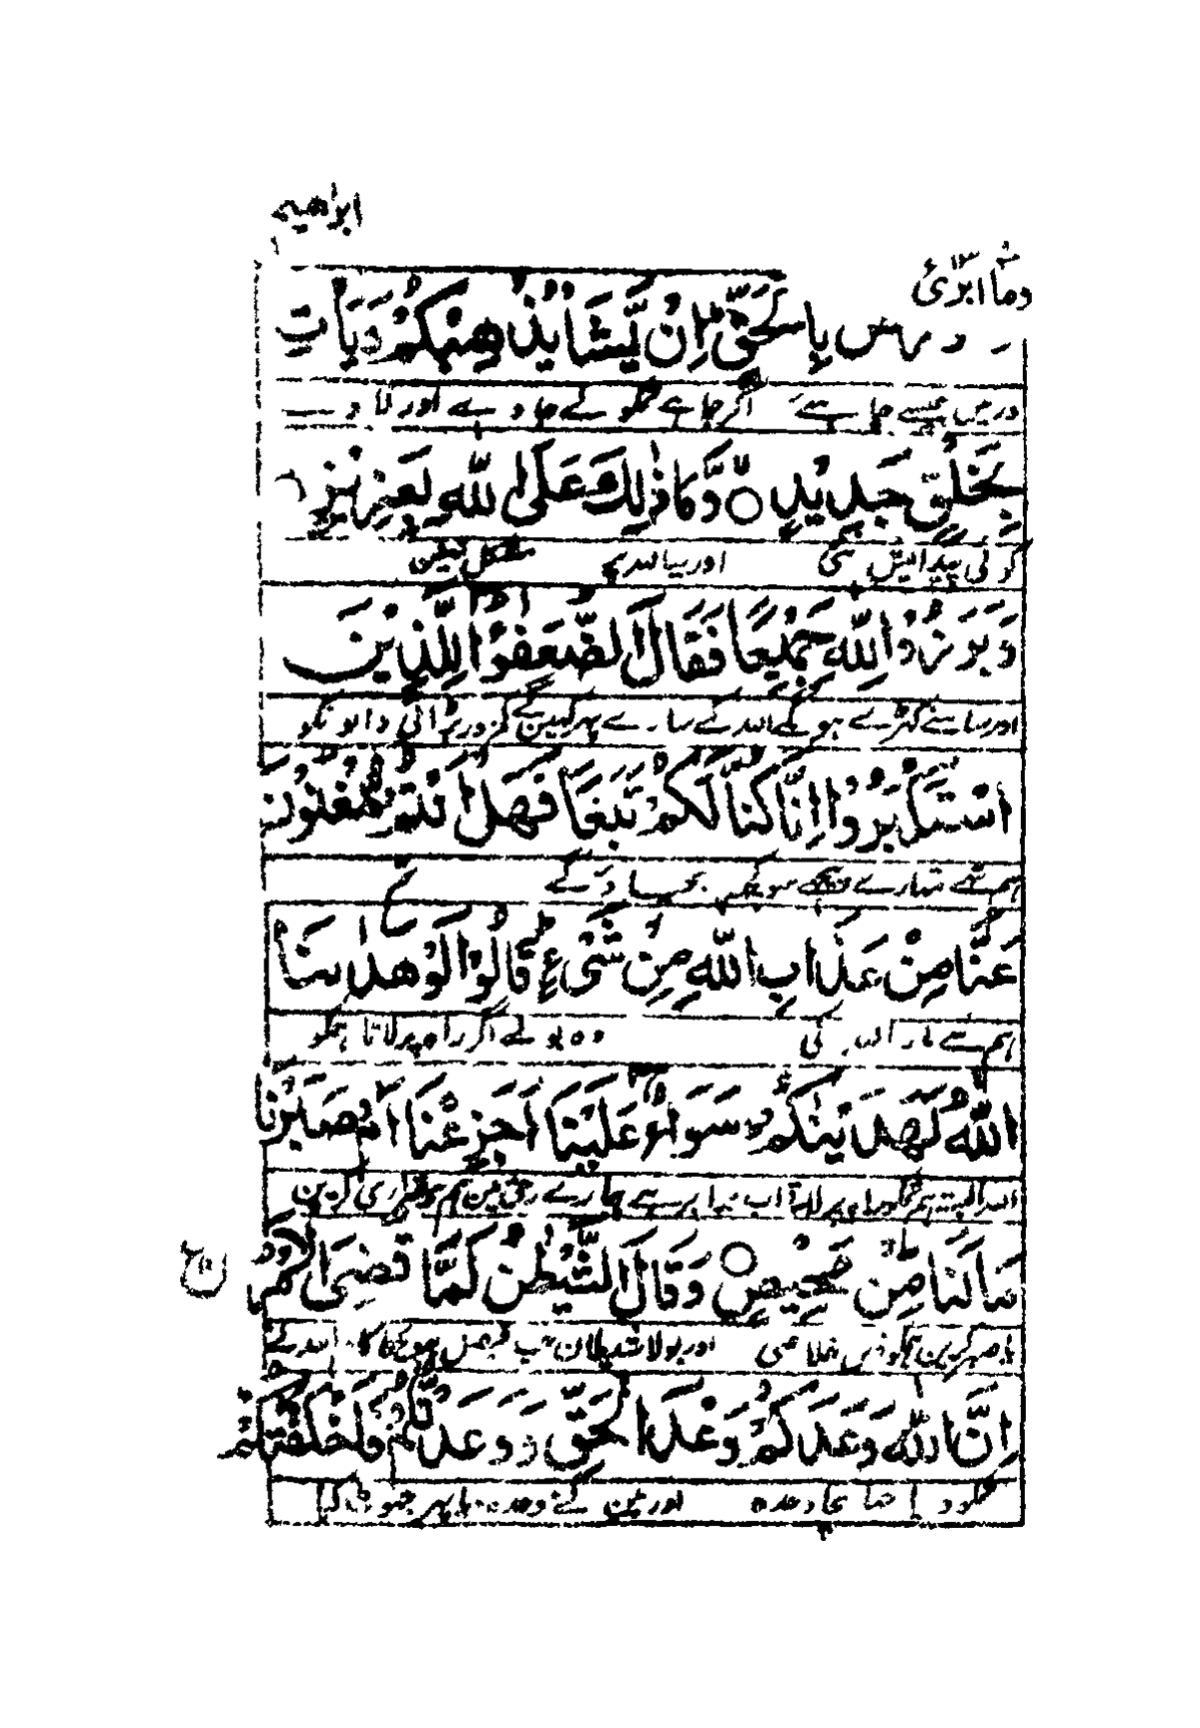 ابراهيم
وما ابرئ ١٣
بِالْحَقِّ اِنْ يَّشَاْ يُذْهِبْكُمْ وَيَاْتِ
اگر چاہے تمکو لے جاوے اور لاوے
بِخَلْقٍ جَدِيْدٍ ○ وَّمَا ذٰلِكَ عَلَى اللّٰهِ بِعَزِيْزٍ
کوئی پیدایش نئی اور یہ اللہ پر مشکل نہین
وَبَرَزُوْا لِلّٰهِ جَمِيْعًا فَقَالَ الضُّعَفٰٓؤُا لِلَّذِيْنَ
اور سامنے کہڑے ہونگے اللہ کے سارے پہر کہین گے کمزور بڑائی والونکو
اسْتَكْبَرُوْٓا اِنَّا كُنَّا لَكُمْ تَبَعًا فَهَلْ اَنْتُمْ مُّغْنُوْنَ
ہم تھے تمہارے پیچھے سو کچھ بچاؤ گے
عَنَّا مِنْ عَذَابِ اللّٰهِ مِنْ شَيْءٍ قَالُوْا لَوْ هَدٰىنَا
ہم سے مار اللہ کی وہ بولے اگر راہ پر لاتا ہمکو
اللّٰهُ لَهَدَيْنٰكُمْ سَوَآءٌ عَلَيْنَآ اَجَزِعْنَآ اَمْ صَبَرْنَا
اللہ البتہ ہم تمکو راہ پر لاتے اب برابر ہے ہمارے حق مین ہم بیقراری کرین
مَا لَنَا مِنْ مَّحِيْصٍ ○ وَقَالَ الشَّيْطٰنُ لَمَّا قُضِيَ الْاَمْرُ
یا صبر کرین ہمکو نہین خلاصی اور بولا شیطان جب فیصل ہو چکا کام اللہ نے
اِنَّ اللّٰهَ وَعَدَكُمْ وَعْدَ الْحَقِّ وَوَعَدْتُّكُمْ فَاَخْلَفْتُكُمْ
تمکو دیا تھا سچا وعدہ اور مین نے وعدہ دیا پہر جھوٹ کیا